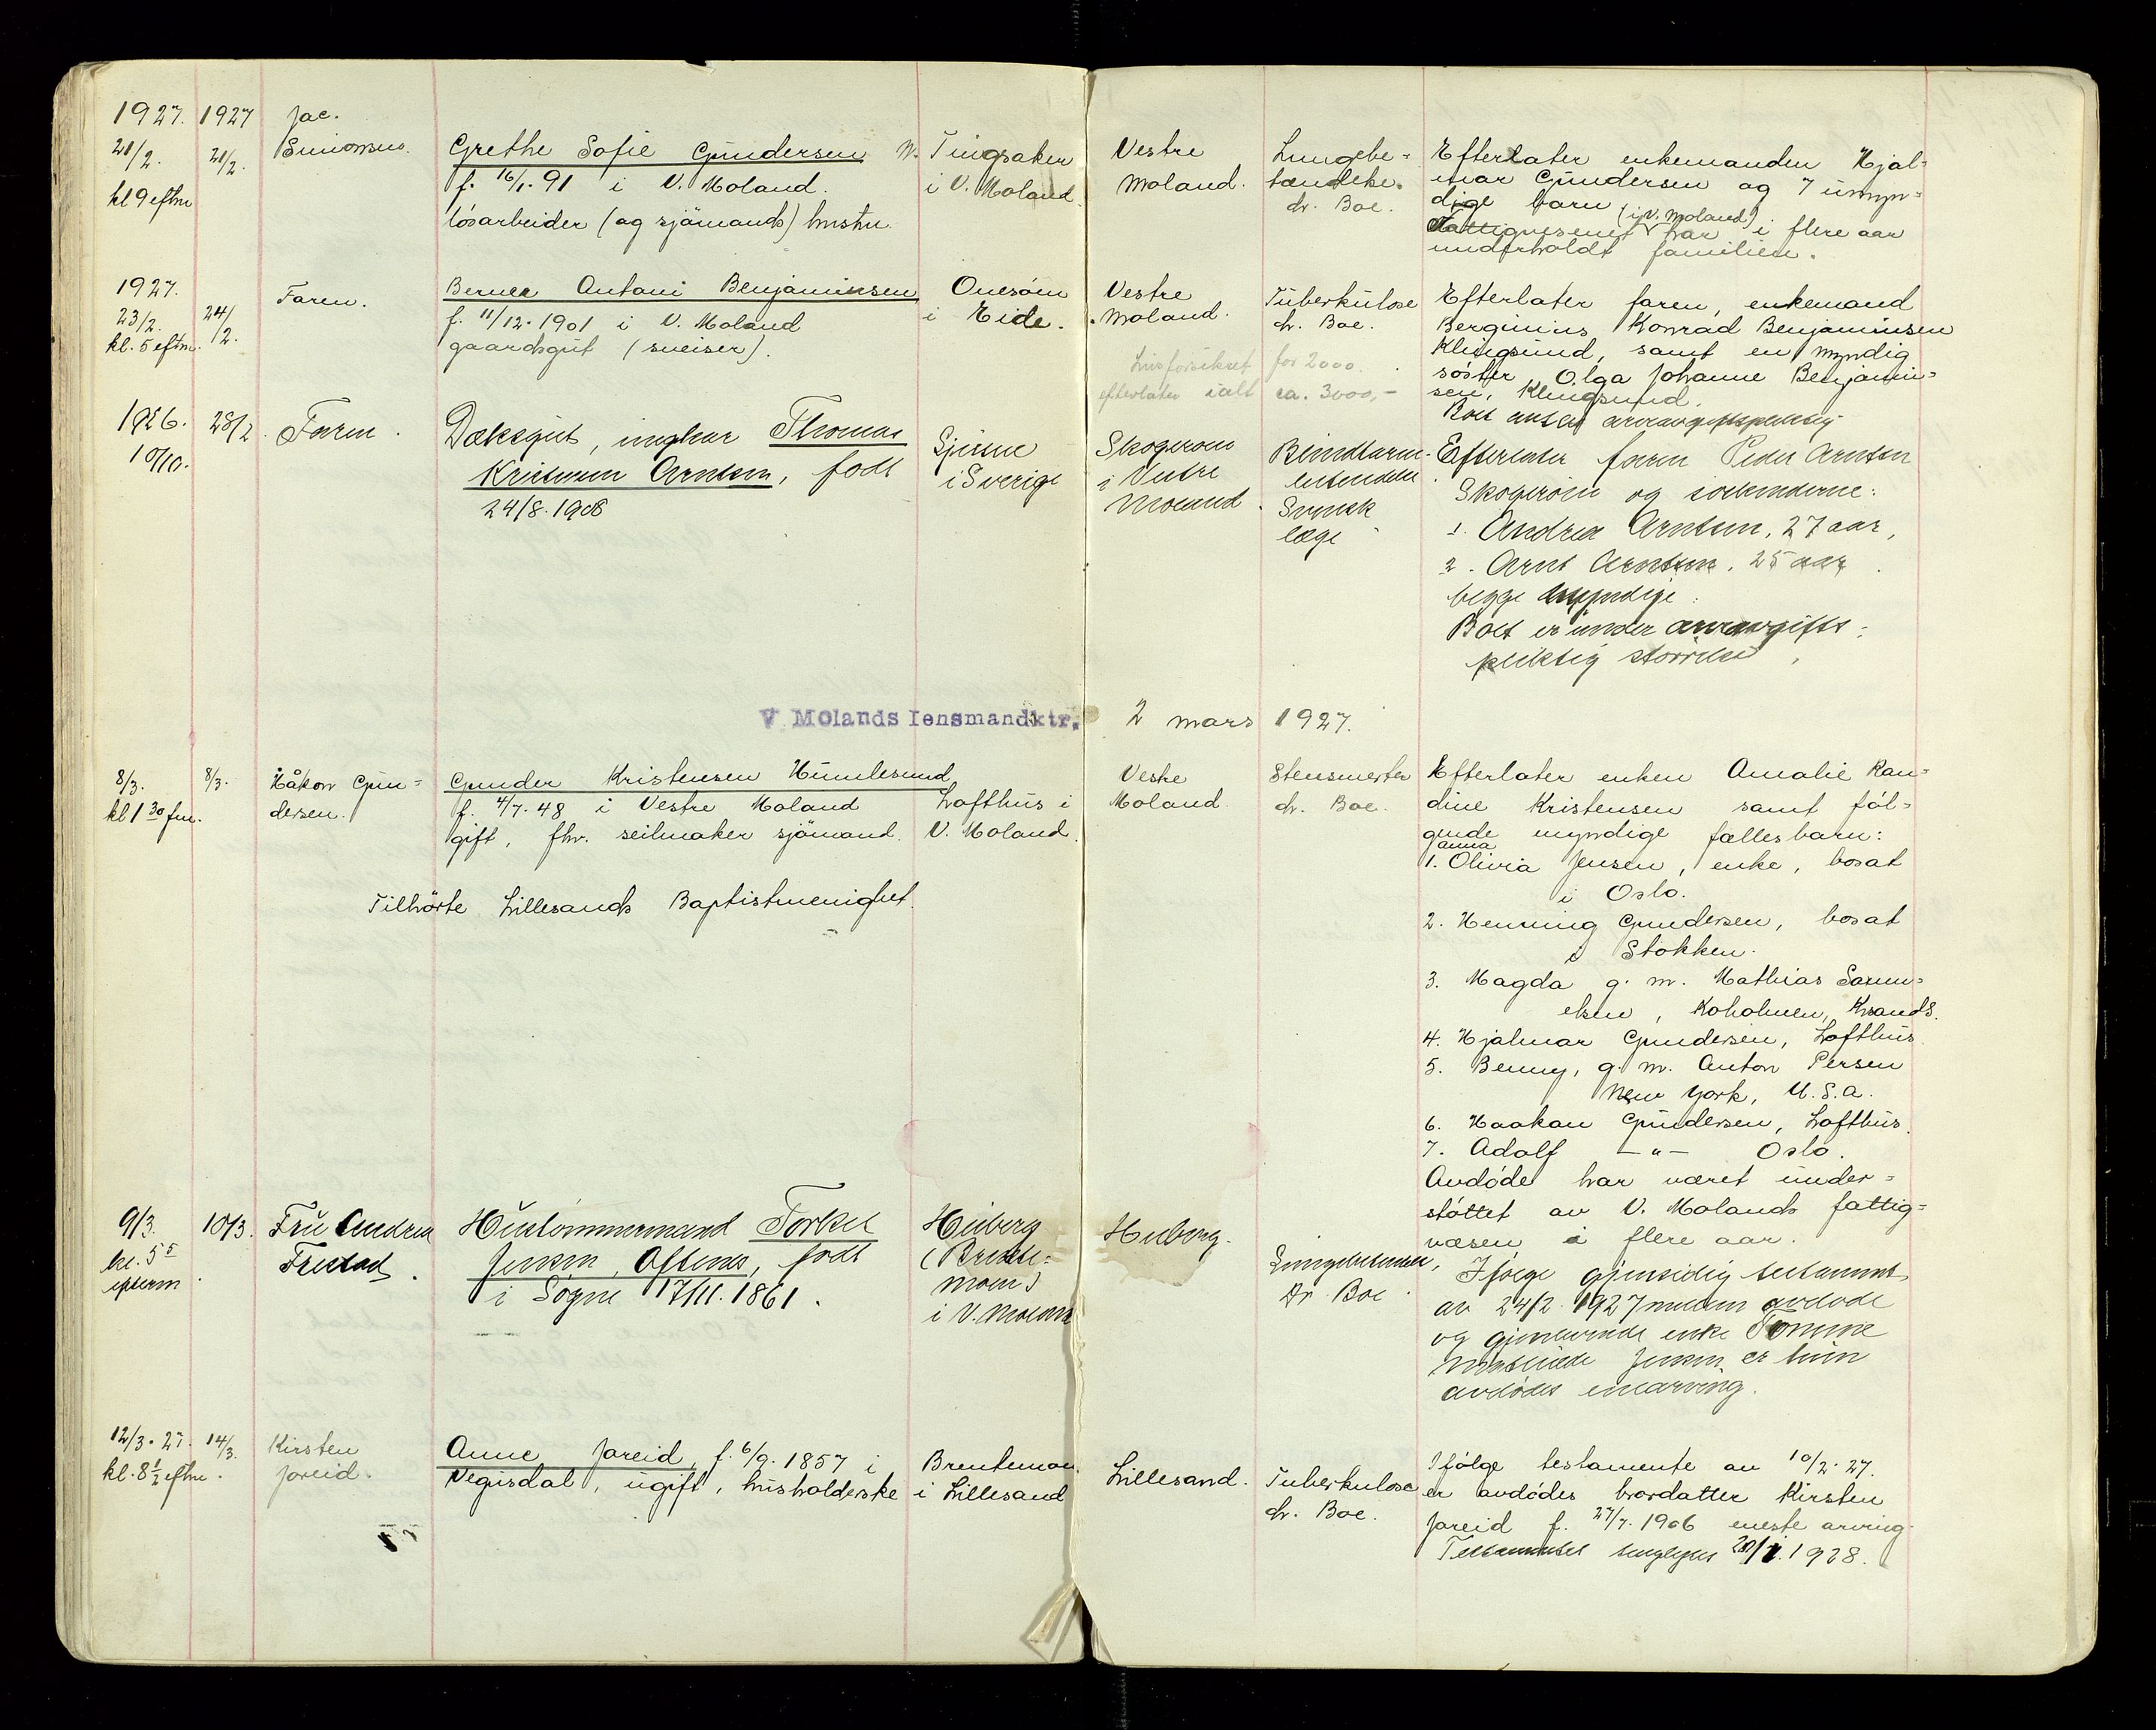 1927. 1927 Jac.
21/2. 21/2. Simonsen. Grethe Sofie Gundersen Tingsaker Vestre Lungebe= Efterlater enkemanden Hjal=
kl 9 eftm f. 16/1-91 i V. Moland. i V. Moland Moland. tændelse. mar Gundersen og 7 umyn=
løsarbeider (og sjømands) hustru. dr. Boe. dige barn
Fattigvesenet (i V. Moland) har i flere aar
underholdt familien.
1927.
23/2. 24/2. Faren. Berner Antoni Benjaminsen Onesøm Vestre Tuberkulose Efterlater faren, enkemand
kl. 5 eftm. f. 11/12-1901 i V. Moland i Eide. Moland. dr. Boe. Berginius Konrad Benjaminsen
gaardsgut (sveiser). Livsforsikret for 2000. Klingsund, samt en myndig
efterlater ialt ca. 3000,- søster Olga Johanne Benjamin=
sen, Klingsund.
Boet anses arveavgiftspliktig
1926. 28/2. Faren. Dæksgut, ungkar Thomas Sverige Skogerøm Blindtarm- Efterlater faren Peder Arntsen
10/10. Kristensen Arntsen, født i Sverige i Vestre betendelse Skogerøm og søskenderne:
24/8. 1908 Moland. Svensk 1. Andrea Arntsen, 27 aar,
læge 2. Arnt Arntsen, 25 aar.
begge myndige.
Boet er under arveavgifts=
pliktig størrelse.
V Molands lensmandktr. 2 mars 1927.
8/3. 8/3. Håkon Gun= Gunder Kristensen Humlesund Vestre Efterlater enken Amalie Ran=
kl 1 30 fm. dersen. f. 4/7-48 i Vestre Moland Lofthus i Moland. dr. Boe. dine Kristensen samt føl=
gift, fhv. seilmaker sjømand. V. Moland. gende myndige fællesbarn:
1. Olivia Jensen, enke, bosat
Tilhørte Lillesands Baptistmenighet. i Oslo.
2. Henning Gundersen, bosat
i Stokken.
3. Magda g. m. Mathias Samu=
elsen, Koholmen, Krands.
4. Hjalmar Gundersen, Lofthus.
5. Benny, g. m. Anton Persen
New York, U.S.A.
6. Haakon Gundersen, Lofthus.
7. Adolf —"— Oslo.
Avdøde har været under=
støttet av V. Molands fattig=
væsen i flere aar.
9/3. 10/3. Fru Andrea Hustømmermand Torkel Heiberg Heiberg. Lungebetendelse, Ifølge gjensidig testamente
kl. 5 5 Frestad. Jensen Oftenes, født (Brente= Dr. Boe. av 24/2. 1927 mellem avdøde
efterm. i Søgne 17/11. 1861. moen) og gjenlevende enke Tomine
i V. Moland Jensen er hun
avdødes enearving.
12/3-27. 14/3. Kirsten Anne Jareid, f. 6/9. 1857 i Brentemoen Lillesand. Tuberkulose Ifølge testamente av 10/2-27.
kl. 8 1/2 eftm. Jareid. Vegusdal, ugift, husholderske i Lillesand dr. Boe. er avdødes brordatter Kirsten
Jareid f. 27/7. 1906 eneste arving.
Testamentet 1928.